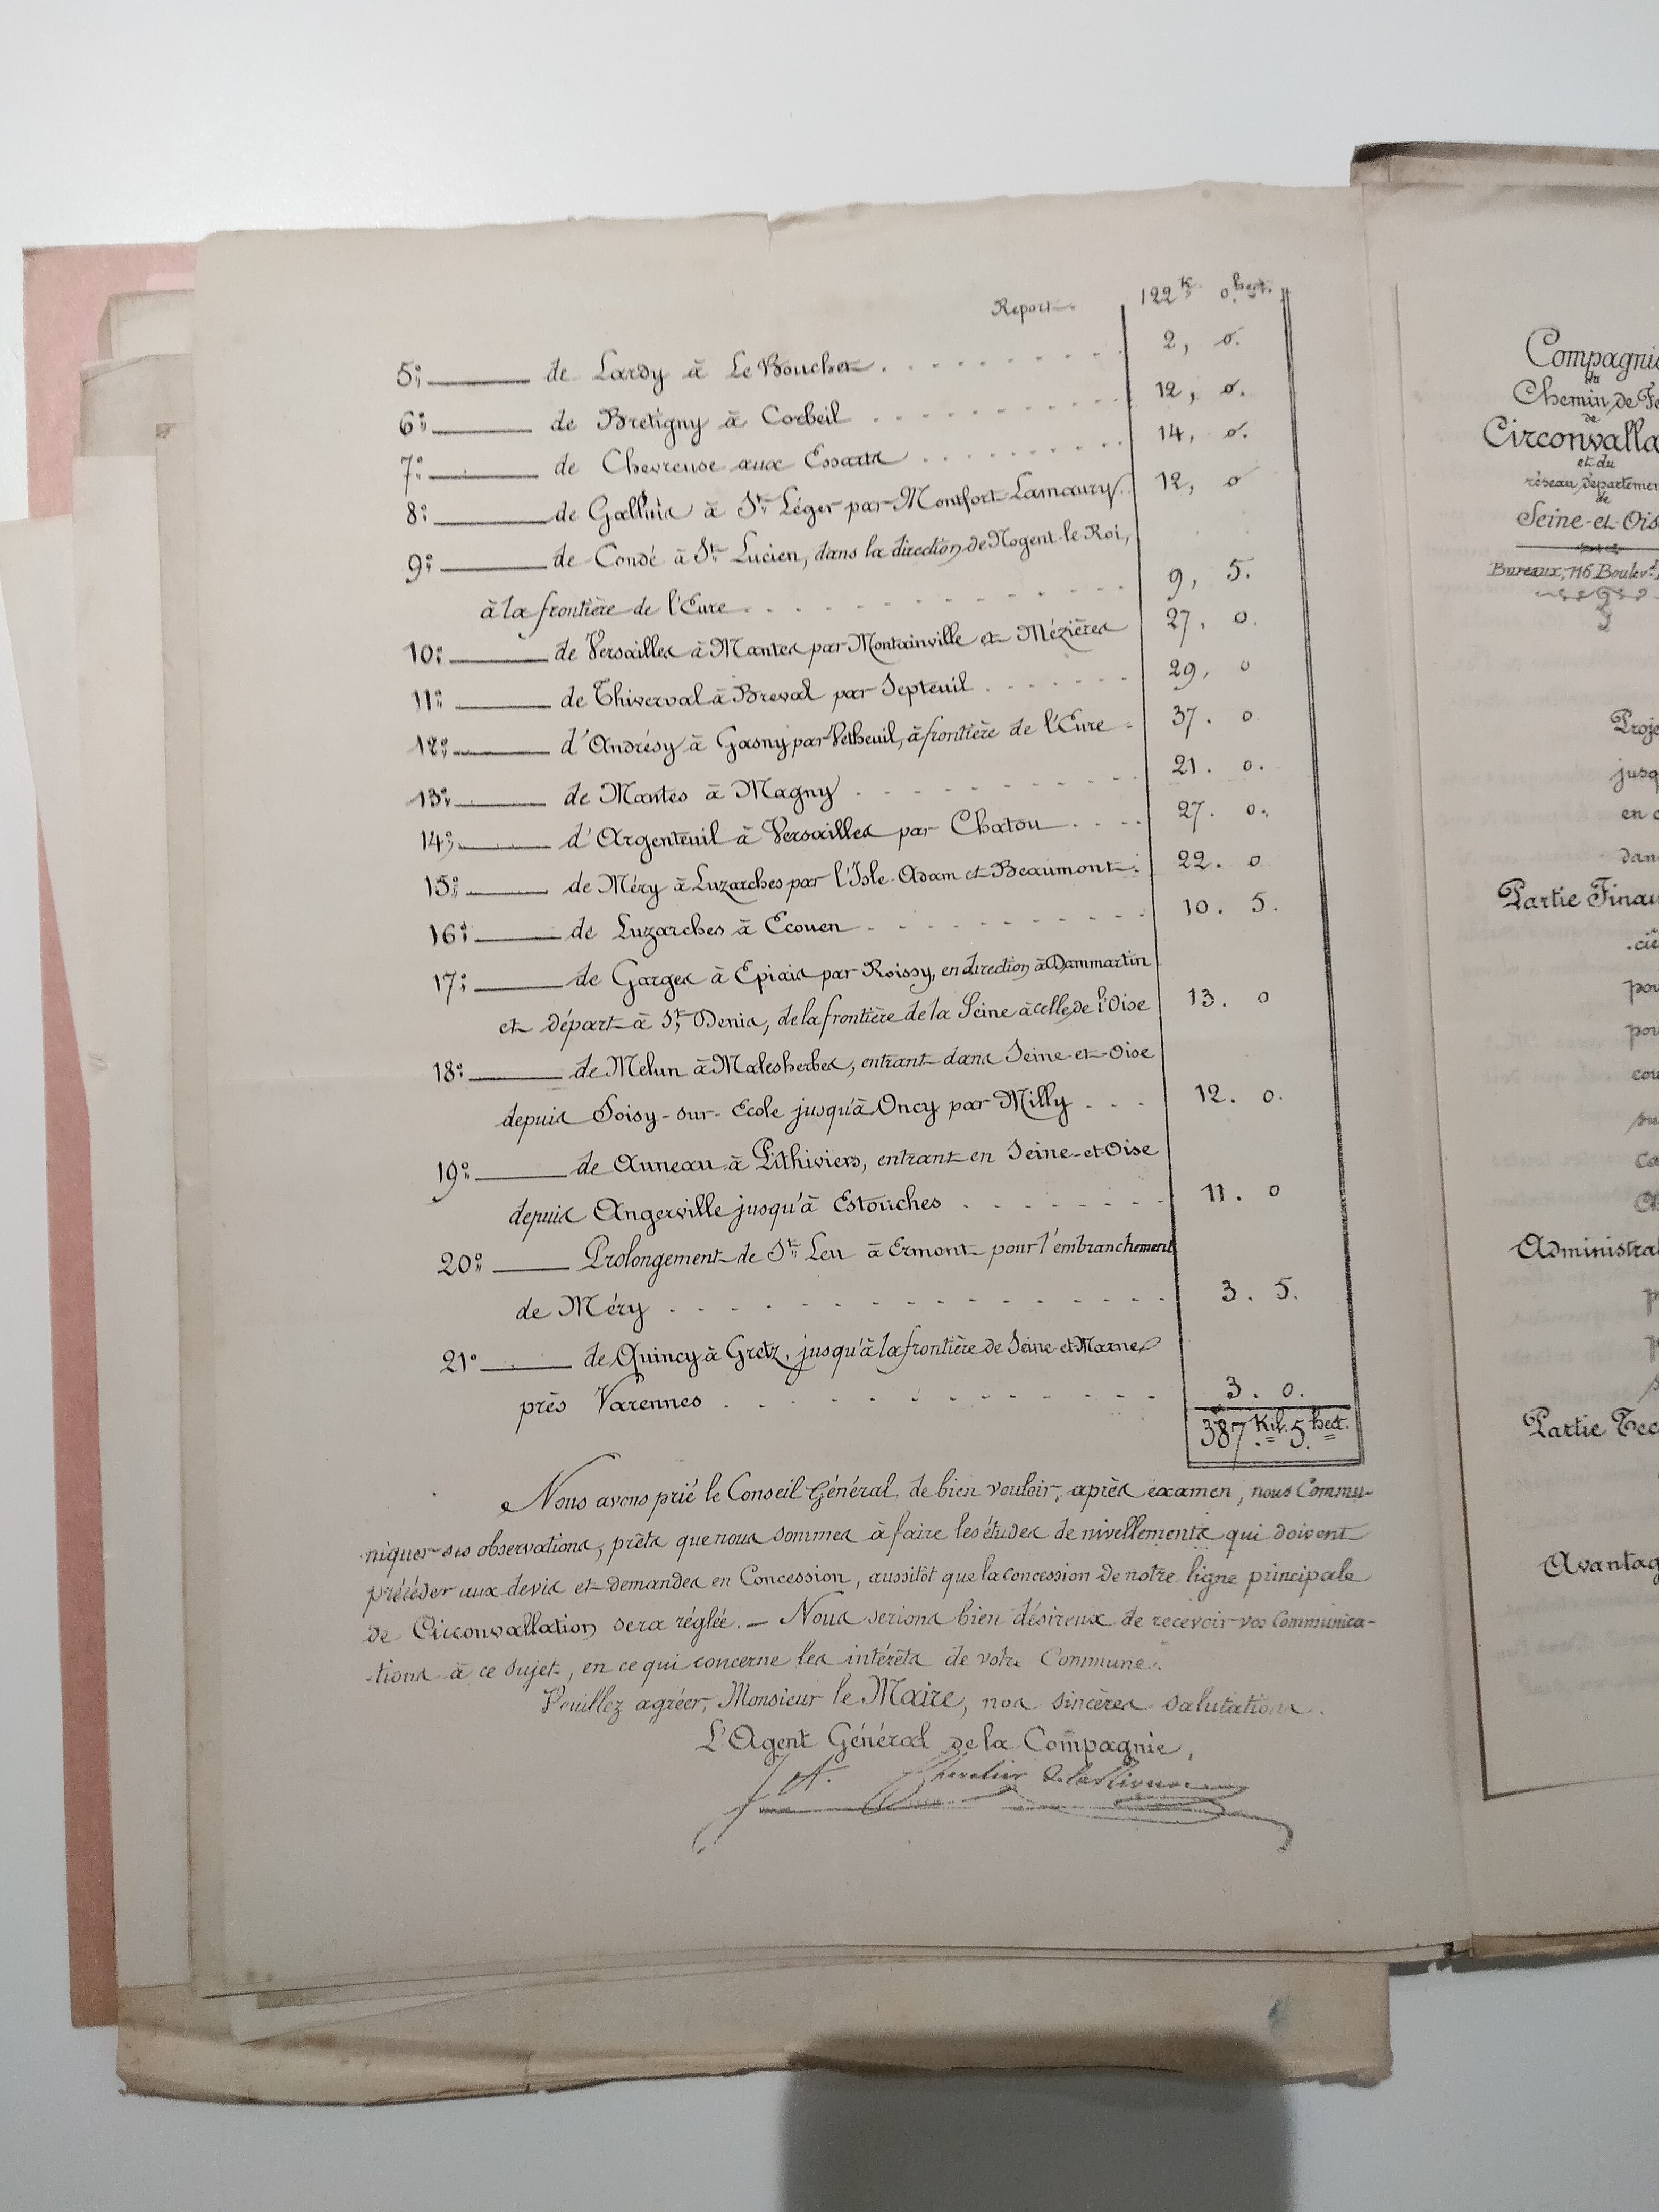 Report 122 K. 0. hect.
5° de Lardy à Le Bouchet 2, 0.
6° de Bretigny à Corbeil 12, 0.
7° de Chevreuse aux Essarts 14, 0.
8° de Galluis à St. Léger par Montfort-Lamaury 12, 0
9° de Condé à St. Lucien, dans la direction de Nogent-le-Roi,
à la frontière de l'Eure 9, 5.
10° de Versailles à Mantes par Montainville et Mézières 27. 0.
11° de Thiverval à Breval par Septeuil 29, 0
12° d'Andrésy à Gasny par Vetheuil, à frontière de l'Eure 37. 0
13° de Mantes à Magny 21. 0.
14° d'Argenteuil à Versailles par Chatou 27. 0.
15° de Méry à Luzarches par l'Isle-Adam et Beaumont 22. 0
16° de Luzarches à Ecouen 10. 5.
17° de Garges à Epiais par Roissy, en direction à Dammartin
et départ à St. Denis, de la frontière de la Seine à celle de l'Oise 13. 0
18° de Melun à Malesherbes, entrant dans Seine-et-Oise
depuis Soisy-sur-Ecole jusqu'à Oncy par Milly 12. 0.
19° de Auneau à Pithiviers, entrant en Seine-et-Oise
depuis Angerville jusqu'à Estouches 11. 0
20° Prolongement de St. Leu à Ermont pour l'embranchement
de Méry 3. 5.
21° de Quincy à Gretz, jusqu'à la frontière de Seine-et-Marne
près Varennes 3. 0.
387 Kil. 5 hect.
Nous avons prié le Conseil Général de bien vouloir, après examen, nous Commu-
niquer ses observations, prêts que nous sommes à faire les études de nivellements qui doivent
précéder aux devis et demandes en Concession, aussitôt que la concession de notre ligne principale
de Circonvallation sera réglée. — Nous serions bien désireux de recevoir vos Communica-
-tions à ce sujet, en ce qui concerne les intérêts de votre Commune.
Veuillez agréer, Monsieur le Maire, nos sincères salutations.
L'Agent Général de la Compagnie,
A. Chevalier
Compagnie
du
Chemin de Fe
de
Circonvalla
et du
réseau départemen
de
Seine-et-Ois
Bureaux, 116 Boulev.
Proje
jusq
en c
dan
Partie Finan
.ciè
pou
pou
cou
su
ca
Administra
Partie Tec
Avantag